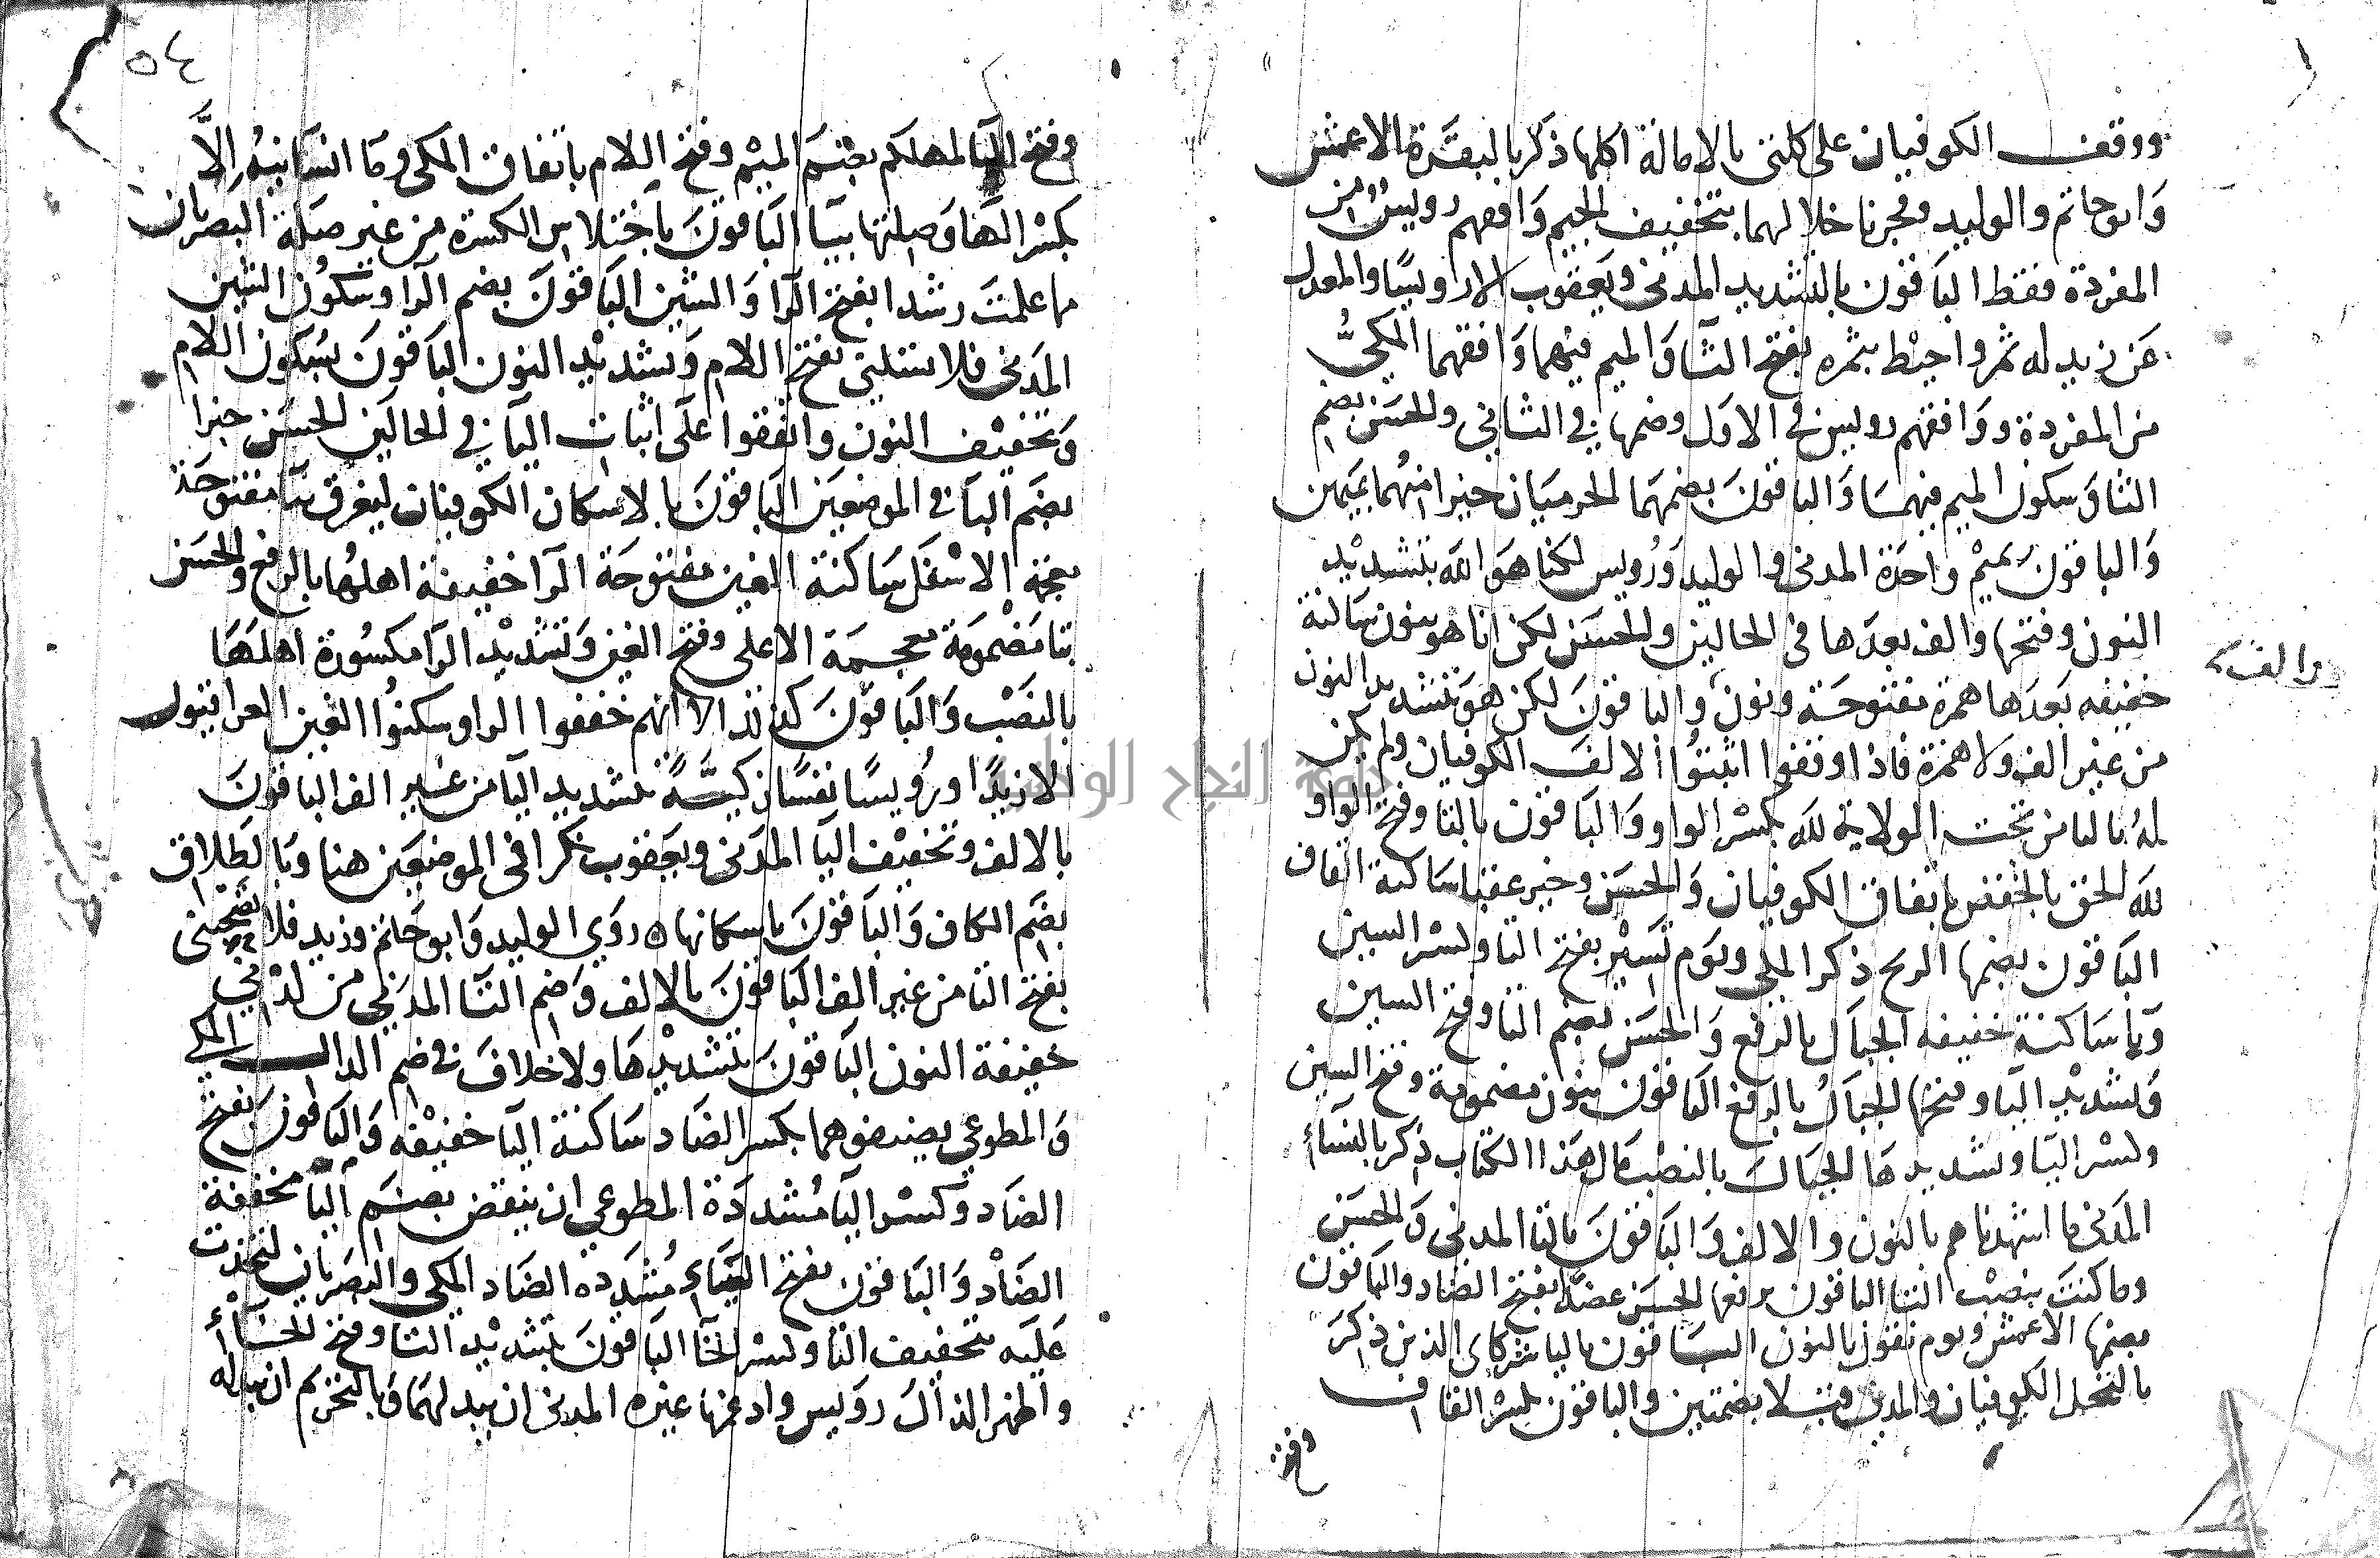 ووقف الكوفيان على كلتي بالامالة اكلها ذكر بالبقرة الاعمش
وابو حاتم والوليد وفجرنا خلالهما بتخفيف الجيم وافقهم رويس من
المفردة فقط الباقون بالتشديد المدني ويعقوب الا رويسا والمعدل
عن زيد له ثمر واحيط بثمره بفتح الثا والميم فيهما وافقهما المكيُّ
من المفردة ووافقهم رويس في الاول وضمها في الثاني والحسن بضم
الثا وسكون الميم فيهما والباقون بضمهما الحرميان خيرا منهما بميمين
والباقون بميم واحدة المدني والوليد ورويس لكنا هو الله بتشديد
النون وفتحها والف بعدها في الحالين والحسن لكن انا هو بنون ساكنة
والف
خفيفه بعدها همزة مفتوحة ونون والباقون لكن هو بتشديد النون
من غير الف ولا همزة فاذا وقفوا اثبتوا الالف الكوفيان ولم يكن
له باليا من تحت الولاية لله بكسر الواو والباقون بالتا وفتح الواو
لله الحق بالخفض باتفاق الكوفيان والحسن وخير عقبا ساكنة القاف
الباقون بضمها الريح ذكر المكي ويوم تسير بفتح التا وكسر السين
ويا ساكنة خفيفه الجبال بالرفع والحسن بضم التا وفتح السين
وتشديد اليا وفتحها الجبال بالرفع الباقون بنون مضمومة وفتح السين
وكسر اليا وتشديدها الجبال بالنصب مال هذا الكتاب ذكر بالنسأ
المدني ما اشهدناهم بالنون والالف والباقون بالتا المدني والحسن
وما كنت بنصب التا الباقون برفعها الحسن عضدا بفتح الضاد والباقون
بضمها الاعمش ويوم نقول بالنون الباقون باليا شركاى الذين ذكر
بالنحل الكوفيان والمدني قبلا بضمتين والباقون بكسر القاف
وفتح
٥٤
وفتح البا لمهلكم بضم الميم وفتح اللام باتفاق المكي وما انسانيه الاَّ
بكسر الها وصلتها بيا الباقون باختلاس الكسرة من غير صلة البصريان
مما علمت رشدا بفتح الرا والشين الباقون بضم الرا وسكون الشين
المدني فلا تسئلني بفتح اللام وتشديد النون الباقون بسكون اللام
وتخفيف النون واتفقوا على اثبات اليا في الحالين الحسن خبرا
بضم البا في الموضعين الباقون بالاسكان الكوفيان ليغرق بيا مفتوحة
معجمة الاسفل ساكنة الغين مفتوحة الرا خفيفة اهلها بالرفع والحسن
بتا مضمومة معجمة الاعلى وفتح الغين وتشديد الرا مكسورة اهلها
بالنصب والباقون كذلك الا انهم خففوا الرا وسكنوا الغين العراقيون
الا زيدًا ورويسا نفسًا زكيَّةً بتشديد اليا من غير الف الباقون
بالالف وتخفيف اليا المدني ويعقوب نكرا في الموضعين هنا وبالطلاق
بضم الكاف والباقون باسكانها ه روي الوليد وابو حاتم وزيد فلا تصحبنى
بفتح التا من غير الف الباقون بالالف وضم التا المدني من لدني
خفيفة النون الباقون بتشديدها ولا خلاف في ضم الدال المكي
والمطوعي يضيفوهما بكسر الضاد ساكنة اليا خفيفه والباقون بفتح
الضاد وكسر اليا مشددة المطوعي ان ينقض بضم اليا مخففة
الضاد والباقون بفتح الياء مشدده الضاد المكي والبصريان لتخذت
عليه بتخفيف التا وكسر الخا الباقون بتشديد التا وفتح الخأ
واظهر الذال رويس وادغمها غيره المدني ان يبدلهما وبالتحريم ان يبدله